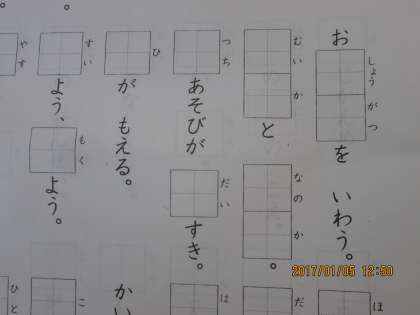 お しょうがつ を いわう。
むいか と なのか 。
つち あそびが だい すき。
ひ が もえる。
すい よう、 もく よう。
やす
ほ
だ
は
か
こ
ひと
2017/01/05 12:50